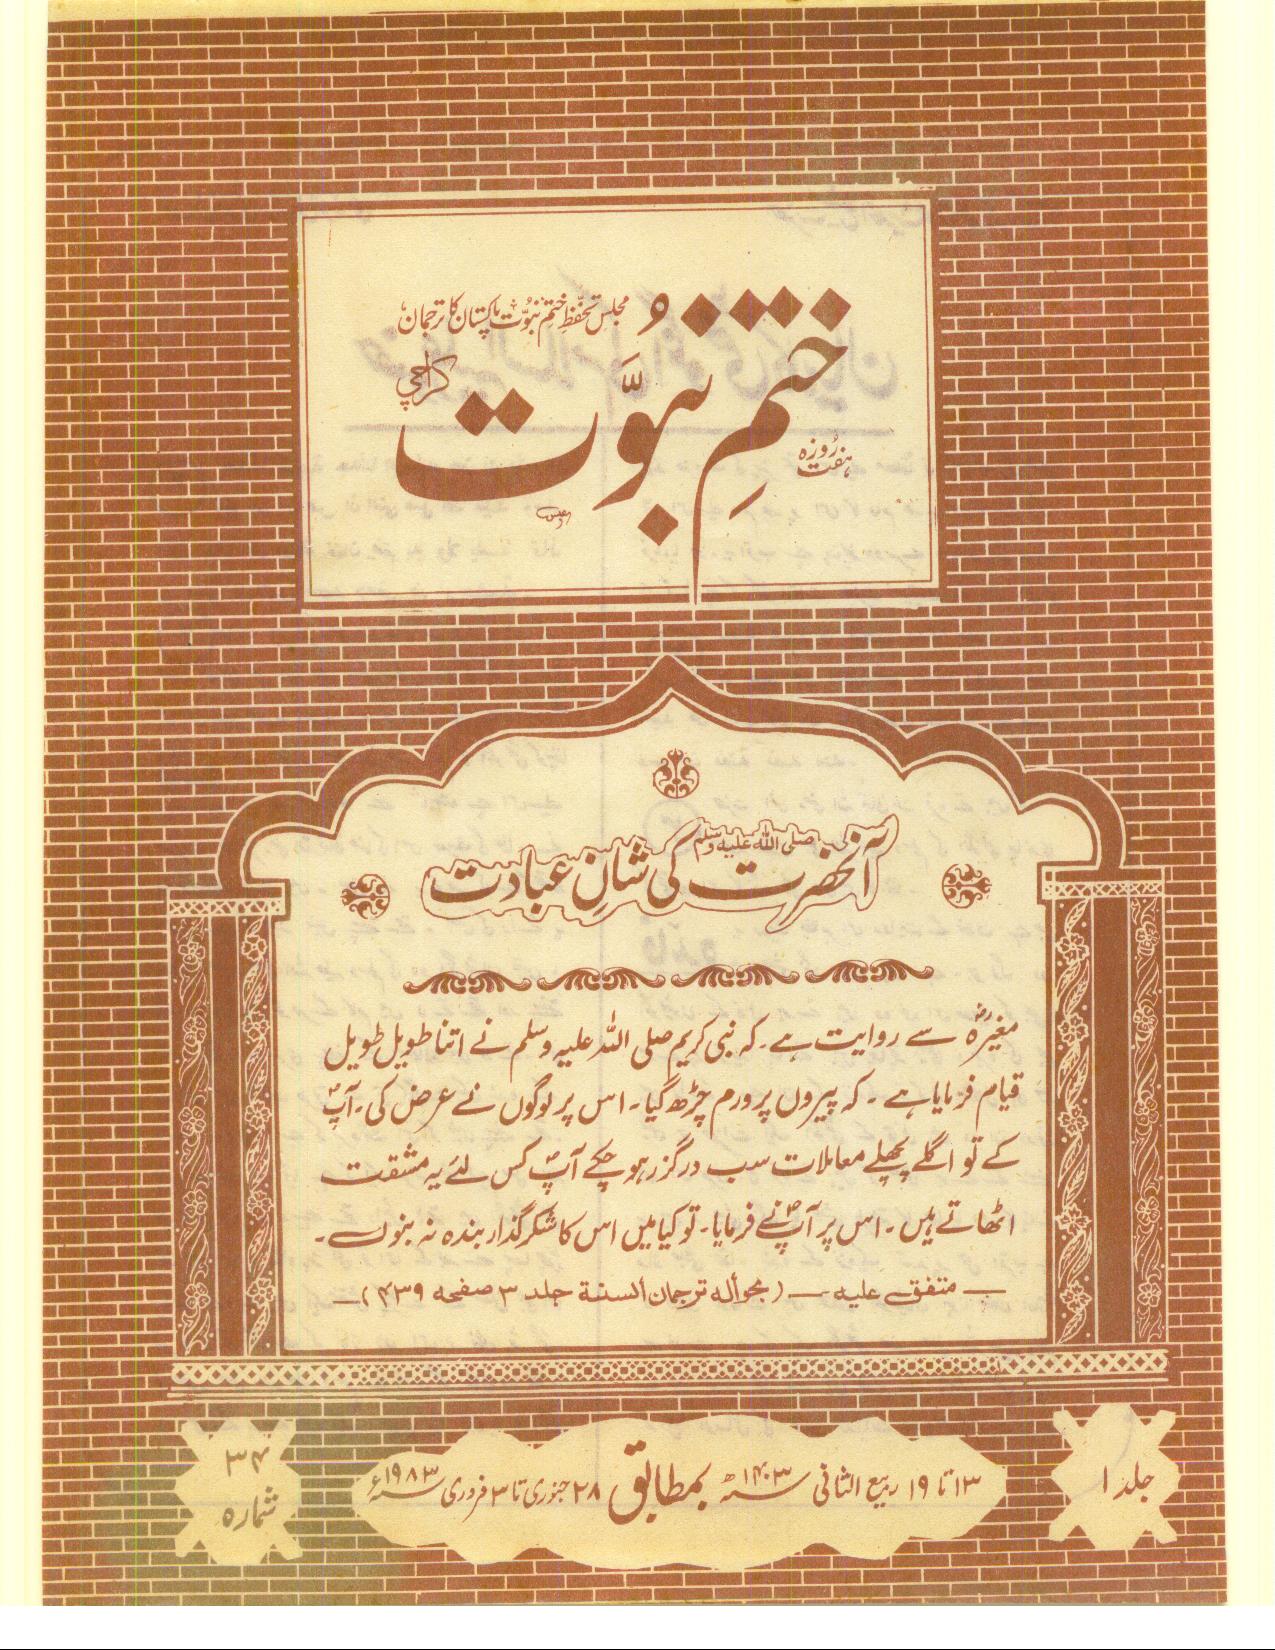 مجلس تحفظِ ختمِ نبوّت پاکستان کا ترجمان
ختمِ نبوّت
کراچی
ہفت روزہ
آنحضرت صلی اللہ علیہ وسلم کی شانِ عبادت
مغیرہؓ سے روایت ہے۔ کہ نبی کریم صلی اللہ علیہ وسلم نے اتنا طویل طویل
قیام فرمایا ہے۔ کہ پیروں پر ورم چڑھ گیا۔ اس پر لوگوں نے عرض کی۔ آپؐ
کے تو اگلے پچھلے معاملات سب درگزر ہو چکے آپؐ کس لئے یہ مشقت
اٹھاتے ہیں۔ اس پر آپؐ نے فرمایا۔ تو کیا میں اس کا شکر گذار بندہ نہ بنوں۔
— متفق علیہ — (بحوالہ ترجمان السنة جلد ۳ صفحہ ۴۳۹) —
جلد ۱
۱۳ تا ۱۹ ربیع الثانی ۱۴۰۳ھ بمطابق ۲۸ جنوری تا ۳ فروری ۱۹۸۳ء
۳۴
شمارہ